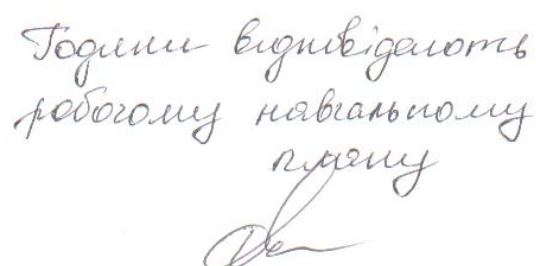 Години відповідають
робочому навчальному
плану